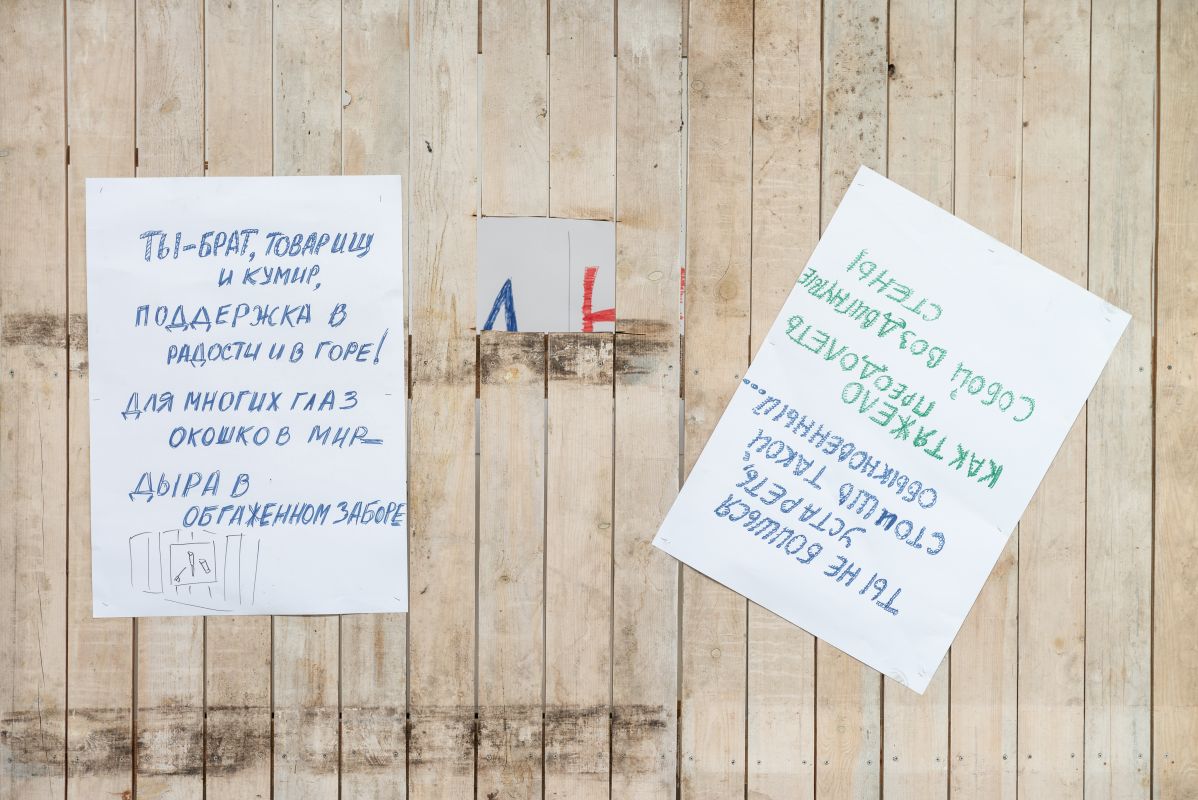 ТЫ-БРАТ, ТОВАРИЩ
И КУМИР,
ПОДДЕРЖКА В
РАДОСТИ И В ГОРЕ!
ДЛЯ МНОГИХ ГЛАЗ
ОКОШКО В МИР –
ДЫРА В
ОБГАЖЕННОМ ЗАБОРЕ
ТЫ НЕ БОИШЬСЯ
УСТАРЕТЬ,
СТОИШЬ ТАКОЙ
ОБЫКНОВЕННЫЙ...
КАК ТЯЖЕЛО
ПРЕОДОЛЕТЬ
СОБОЙ ВОЗДВИГНУТЫЕ
СТЕНЫ